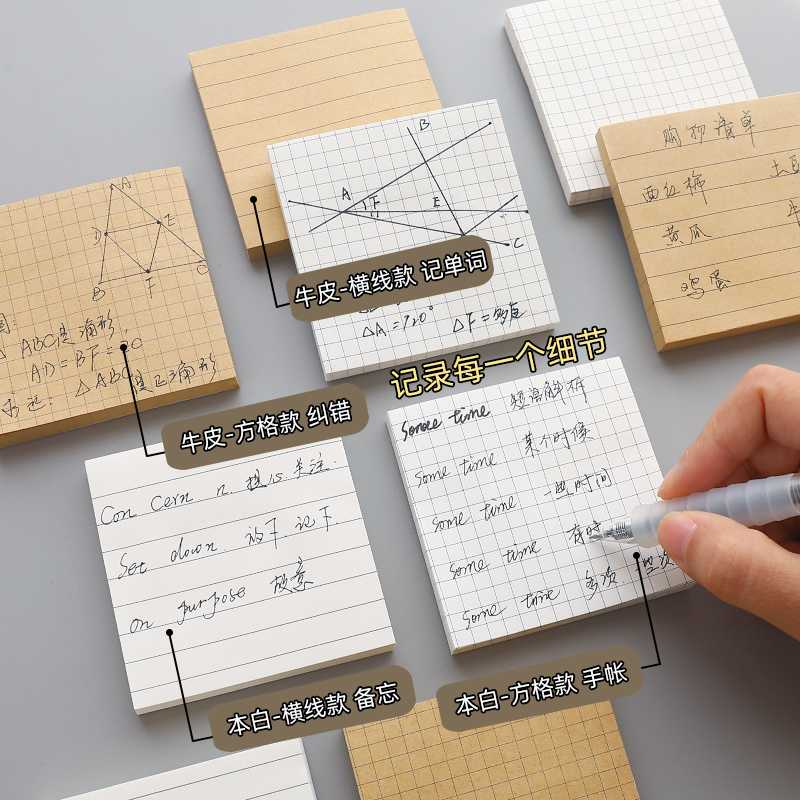 购物清单
西红柿 土豆
黄瓜
鸡蛋
A
B
C
D
E
F
ABC是
AD=BF=
△ABC是正三角形
B
A
F
E
C
牛皮-横线款 记单词
△F=
记录每一个细节
牛皮-方格款 纠错
some time 短语解析
some time 某个时候
some time 一些时间
some time 有时
some time 多次
Con cern n. 担心.关注.
Set down. 放下.记下.
on purpose 故意
本白-横线款 备忘
本白-方格款 手帐